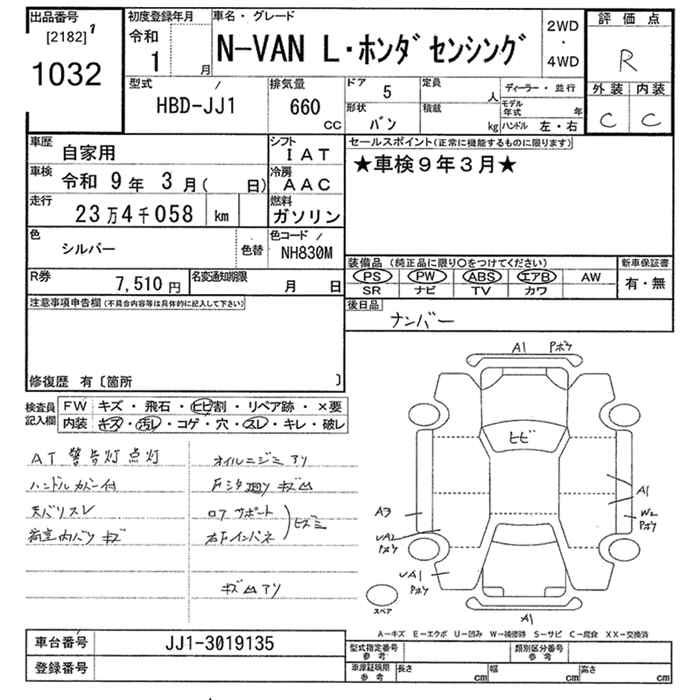 出品番号
[2182]
1032
初度登録年月
令和
1 月
車名・グレード
N-VAN L・ホンダセンシング
2WD
・
4WD
評価点
R
外装 内装
C C
型式
HBD-JJ1
排気量
660
cc
ドア 5
定員 人
ディーラー・並行
モデル年式 年
形状 バン
積載 kg
ハンドル 左・右
車歴 自家用
シフト IAT
車検 令和 9年 3月( 日)
冷房 AAC
走行 23万4千058 km
燃料 ガソリン
色 シルバー
色替
色コード NH830M
R券 7,510円
名変通知期限 月 日
セールスポイント(正常に機能するものに限ります)
★車検9年3月★
装備品 (純正品に限り○をつけてください)
新車保証書
PS PW ABS エアB AW
SR ナビ TV カワ
有・無
後日品
ナンバー
注意事項申告欄(不具合内容等は具体的に記入して下さい)
修復歴 有〔箇所 〕
検査員記入欄
FW キズ・飛石・ヒビ割・リペア跡・×要
内装 キズ・汚レ・コゲ・穴・スレ・キレ・破レ
AT 警告灯 点灯
ハンドルカバー付
天バリスレ
荷室内バリ キズ
オイルニジミアリ
ロアサポート
右下インパネ
キズムアリ
A1 Pホウ
ヒビ
A3
A1
W2
Pホウ
Pホウ
UA1
Pホウ
スペア
A1
A-キズ E-エクボ U-凹み W-補修跡 S-サビ C-腐食 XX-交換済
車台番号 JJ1-3019135
登録番号
型式指定番号 参考
類別区分番号 参考
車庫証明用 参考
長さ cm
幅 cm
高さ cm